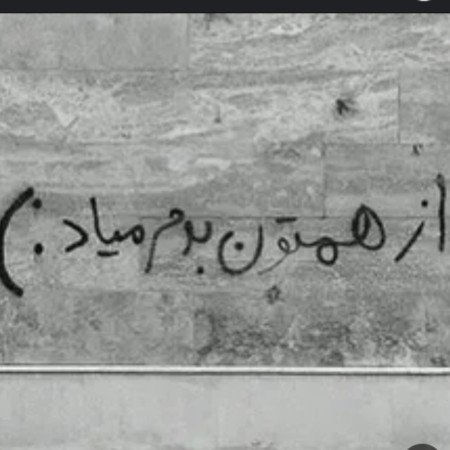 از همتون بدم میاد :)